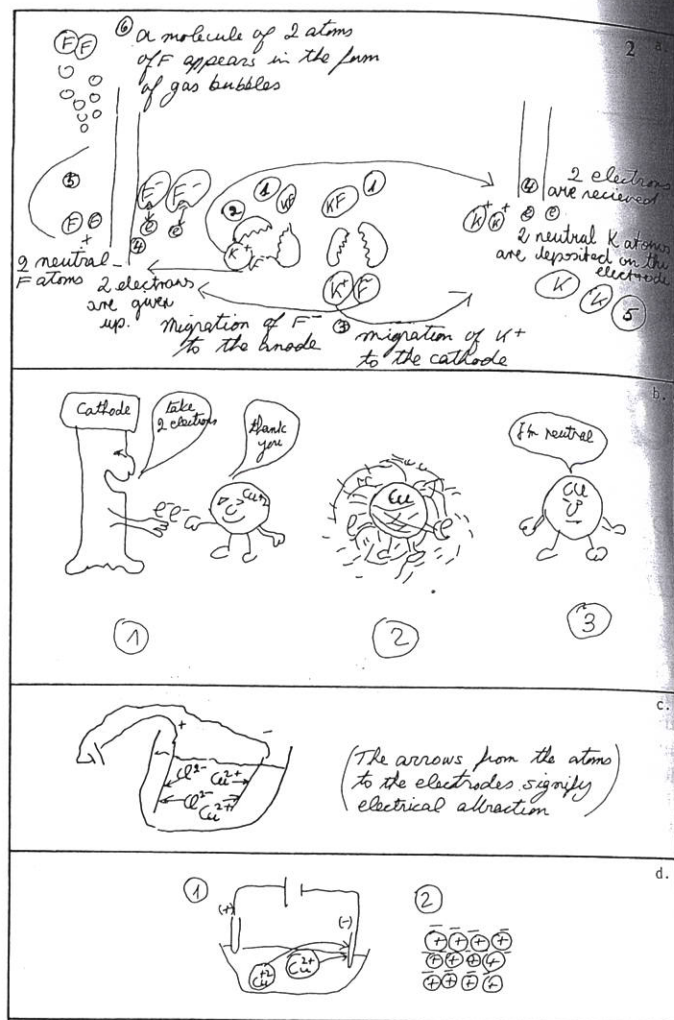 ⑥ a molecule of 2 atoms
of F appears in the form
of gas bubbles
F F
2
a.
⑤
F F
+
2 neutral
F atoms
F⁻ F⁻
e e
④
2 electrons
are given
up.
① KF
②
K⁺
KF ①
K⁺ F⁻
migration of F⁻
to the anode
③ migration of K⁺
to the cathode
K⁺ K⁺
④ 2 electrons
are recieved
e e
2 neutral K atoms
are deposited on the
electrode
K K 5
b.
Cathode
take
2 electrons
thank
you
e⁻e⁻
Cu+2
①
Cu
②
I'm neutral
Cu
③
c.
+ -
Cl²⁻ Cu²⁺
Cl²⁻ Cu²⁺
(The arrows from the atoms
to the electrodes signify
electrical attraction)
d.
①
(+) (-)
Cu⁺² Cu²⁺
②